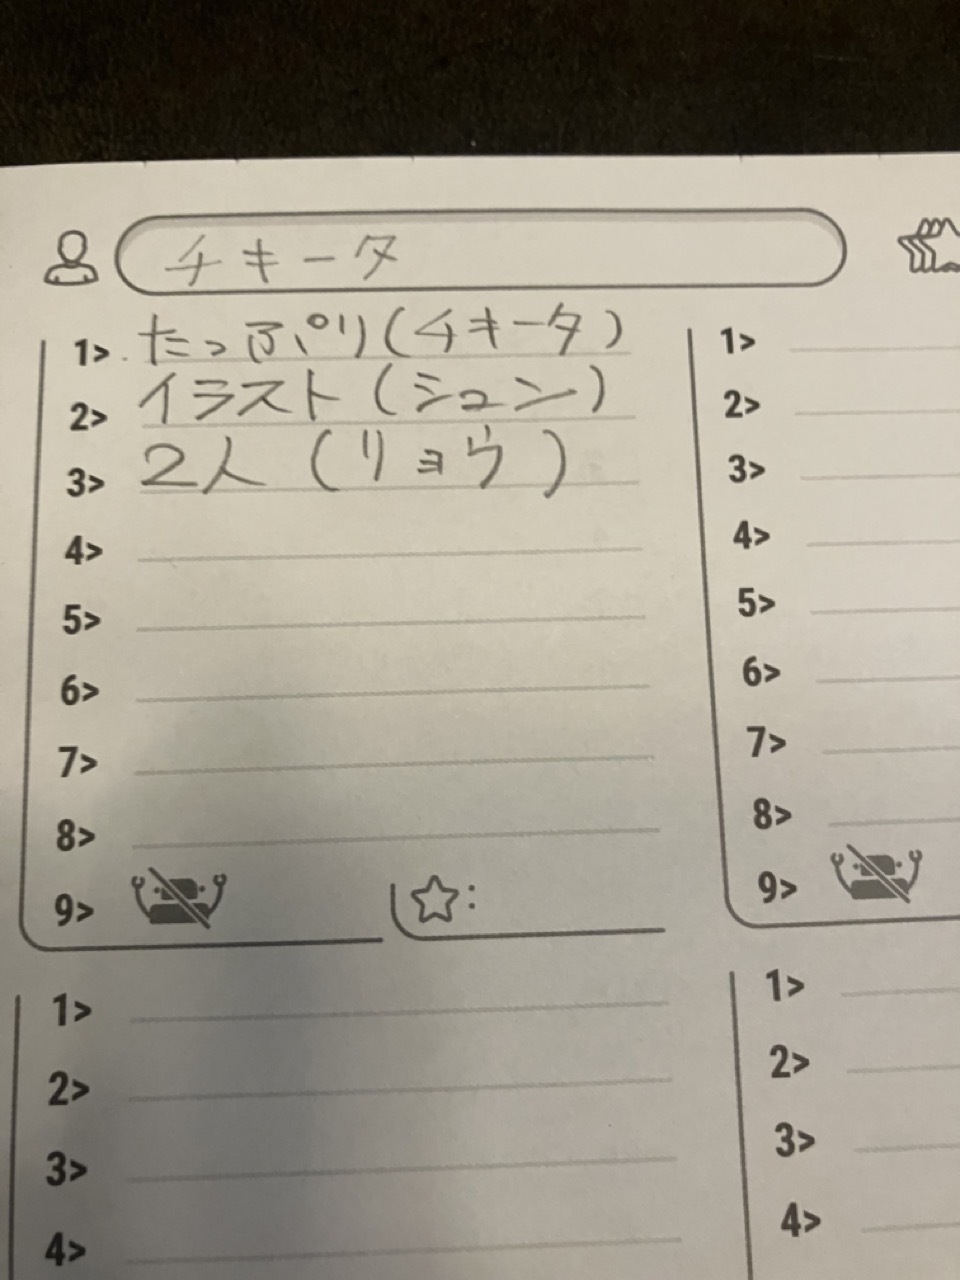 チキータ
1> たっぷり(チキータ)
2> イラスト(シュン)
3> 2人(リョウ)
4>
5>
6>
7>
8>
9>
:
1>
2>
3>
4>
5>
6>
7>
8>
9>
1>
2>
3>
4>
1>
2>
3>
4>